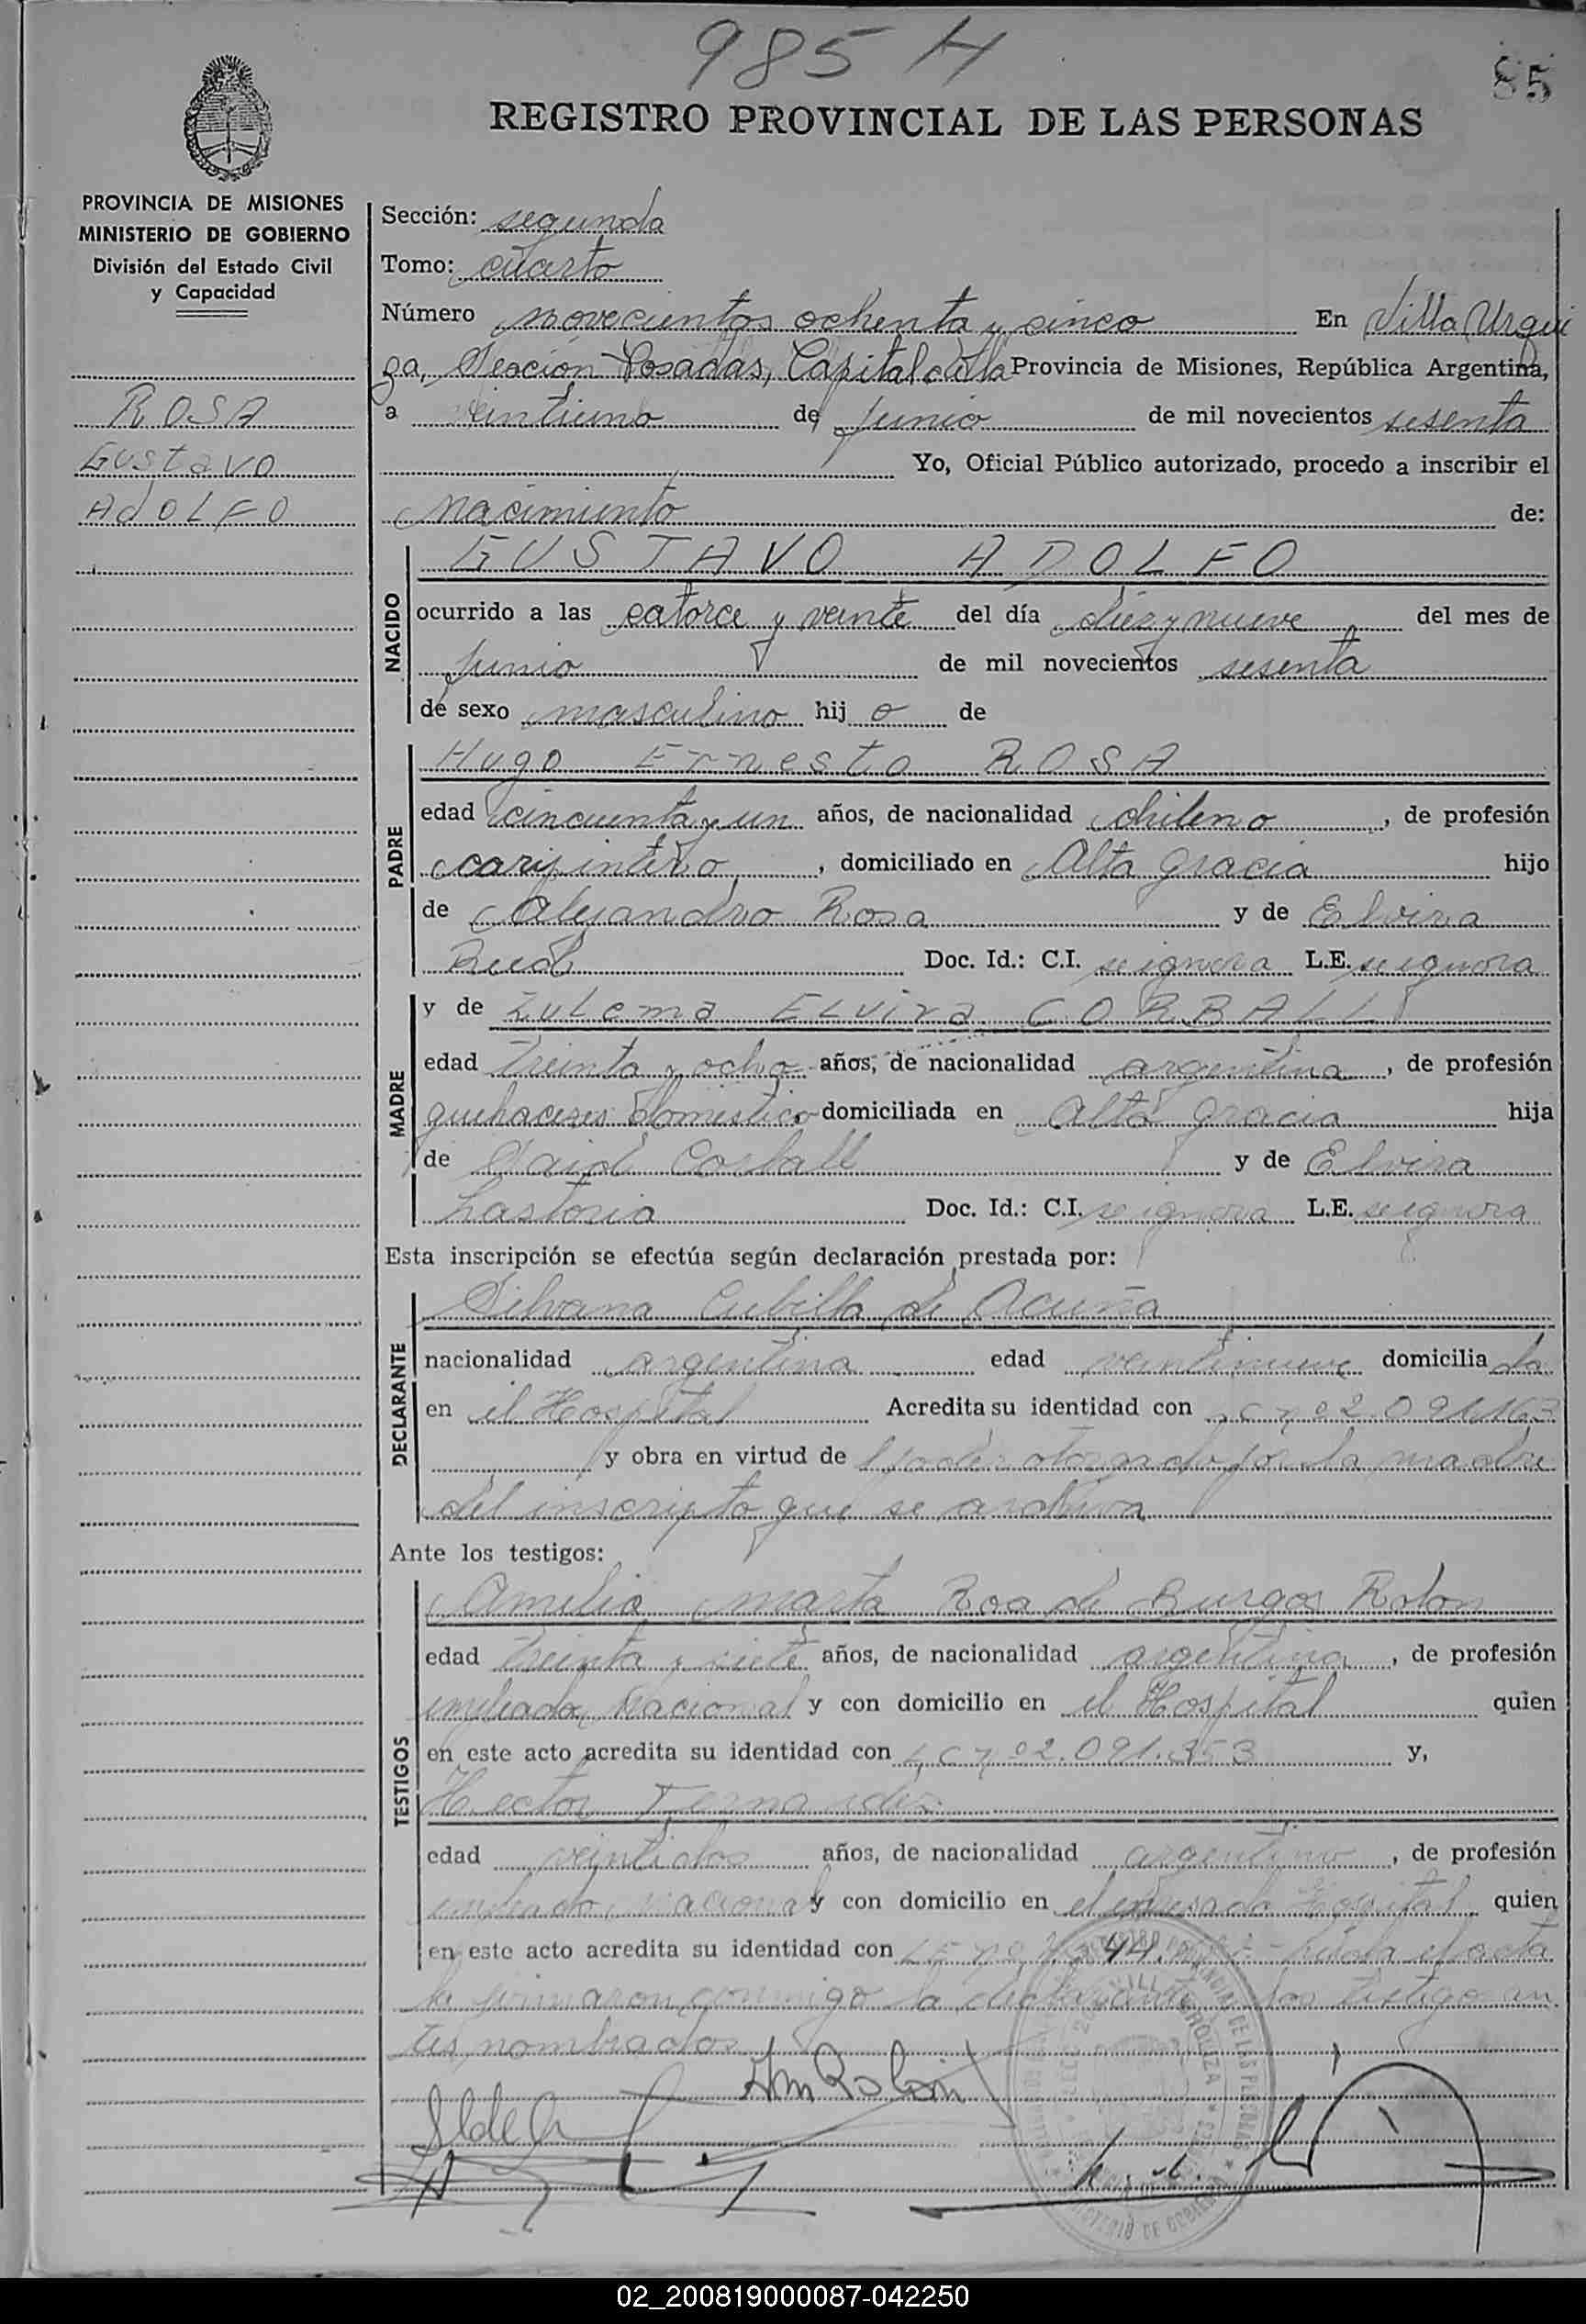 985 H
85
REGISTRO PROVINCIAL DE LAS PERSONAS
PROVINCIA DE MISIONES
MINISTERIO DE GOBIERNO
División del Estado Civil
y Capacidad
ROSA
Gustavo
AdOLFO
Sección: segunda
Tomo: cuarto
Número novecientos ochenta y cinco En Villa Urqui
za, Sección Posadas, Capital de la Provincia de Misiones, República Argentina,
a veintiuno de junio de mil novecientos sesenta
Yo, Oficial Público autorizado, procedo a inscribir el
nacimiento de:
NACIDO
GUSTAVO ADOLFO
ocurrido a las catorce y veinte del día diez y nueve del mes de
junio de mil novecientos sesenta
de sexo masculino hijo de
PADRE
Hugo Ernesto ROSA
edad cincuenta y un años, de nacionalidad chileno, de profesión
carpintero, domiciliado en Alta gracia hijo
de Alejandro Rosa y de Elvira
Doc. Id.: C.I. se ignora L.E. se ignora
MADRE
y de Zulema Elvira CORBALL
edad treinta y ocho años, de nacionalidad argentina, de profesión
quehaceres domestico domiciliada en Alta gracia hija
de y de Elvira
Doc. Id.: C.I. se ignora L.E. se ignora
Esta inscripción se efectúa según declaración prestada por:
DECLARANTE
Silvana Cubilla de Acuña
nacionalidad argentina edad veintinueve domiciliada
en el Hospital Acredita su identidad con
y obra en virtud de poder otorgado por la madre
del inscripto que se archiva
Ante los testigos:
TESTIGOS
Amelia Marta Roa de Burgos Rolon
edad treinta y siete años, de nacionalidad argentina, de profesión
empleada Nacional y con domicilio en el Hospital quien
en este acto acredita su identidad con y,
Hector Fernandez
edad veintidos años, de nacionalidad argentino, de profesión
empleado nacional y con domicilio en el expresado Hospital quien
en este acto acredita su identidad con leida el acta
la firmaron conmigo la declarante y los testigo an
tes nombrados
02_200819000087-042250